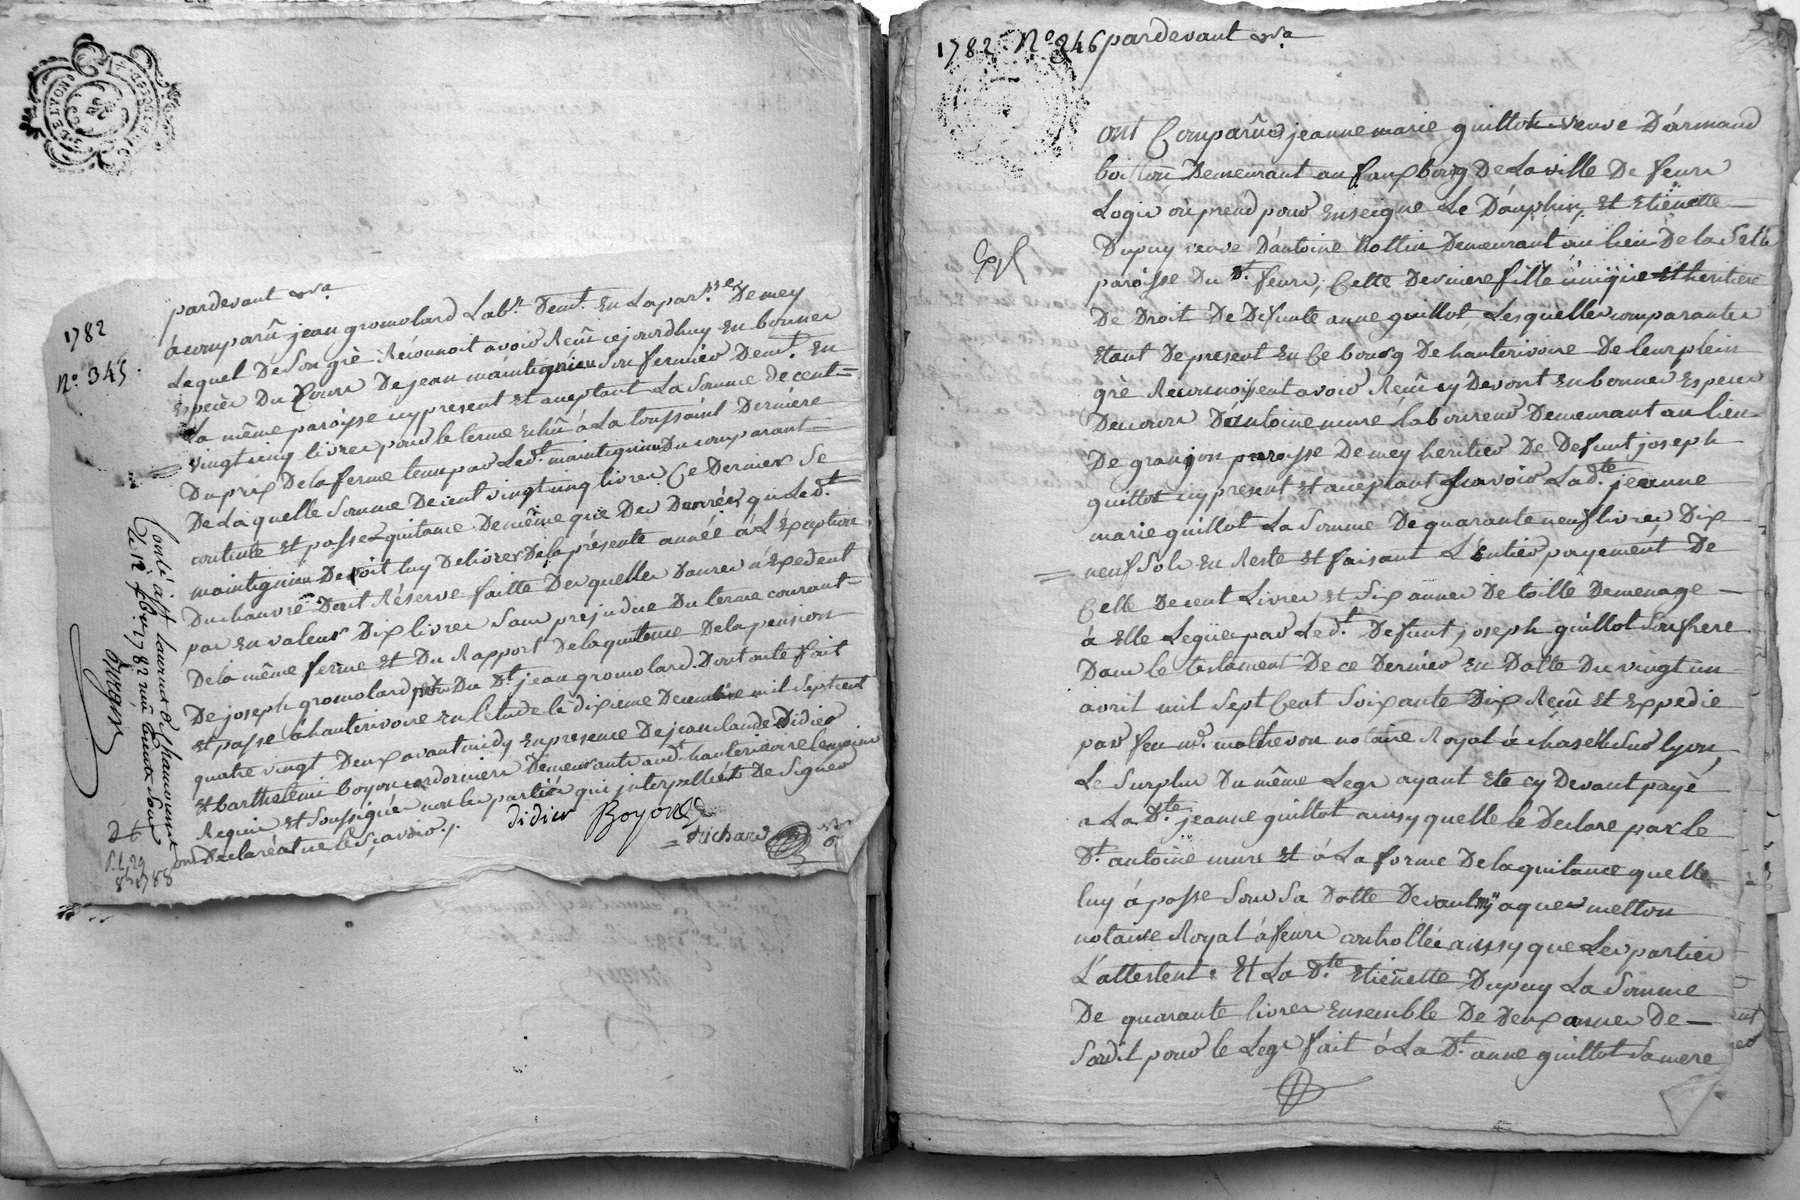 1782
N.o 345.
pardevant &a
a comparû jean gromolard Lab.r Dem.t En La par.sse De mey
Lequel De Son gré Reconnoit avoir Reçu cejourdhuy En bonnes
Especes Du Cours De jean maintignieu Son fermier Dem.t En
La même paroisse icy present Et aceptant La Somme de cent =
vingt cinq livres pour le terme echû à La toussaint Derniere
Du prix De la ferme tenu par Led.t maintignieu Du comparant
De La quelle Somme De cent vingt cinq livres Ce Dernier Se
contente Et passe quitance De même que Des Denrées que Led.t
maintignieu Devoit luy Delivrer De la présente année à L'Exception
Du chanvre Dont Réserve faitte Des quelles Danrées n'Expedent
pas En valeur Dix livres Sans prejudice Du terme courant
De la même ferme Et Du Rapport De la quitence De la pension
De joseph gromolard pere Du D.t jean gromolard Dont acte fait
Et passé à hauterivoire En L'étude le dixieme Decembre mil Sept cent
quatre vingt Deux avant midy En presence De jean claude Didier
Et barthelemi boyon cordonniers Demeurants aud.t hauterivoire temoins
Requis Et Soussignés non les parties qui interpellées De Signer
ont Declaré ne le Sçavoir ./.
Didier Boyon
= Richard
1782 N.o 346 pardevant &a
ont Comparûes jeanne marie guillot veuve D'armand
boision Demeurant au fauxbourg De La ville De feurs
Logis où prend pour Enseigne Le Dauphin, Et Etienette
Dupuy veuve D'antoine Rottin Demeurant au lieu De la
paroisse Du D.t feurs, Cette Derniere fille unique Et heritiere
De Droit De Defunte anne guillot, Lesquelles comparantes
Etant De present En Ce bourg De hauterivoire De leur plein
gré Reconnoissent avoir Reçu cy Devant En bonnes Especes
Du cours D'antoine mure Laboureur Demeurant au lieu
De granjon paroisse De mey heritier De Defunt joseph
guillot icy present Et aceptant Sçavoir La d.te jeanne
marie guillot La Somme De quarante neuf livres Dix
= neuf Sols En Reste Et faisant L'Entier payement De
Celle De cent Livres Et Six aunes De toille De menage
à Elle Leguée par Le d.t Defunt joseph guillot Son frere
Dans le testament De ce Dernier En Datte Du vingt un
avril mil Sept Cent Soixante Dix Reçu Et Expedié
par feu m.e malhevon notaire Royal à chaselle Sur lyon,
Le Surplus Du même Legs ayant Eté cy Devant payé
a La D.te jeanne guillot ainsy quelle le Declare par le
D.t antoine mure Et à La forme De la quitance quelle
luy à passé Sous Sa Datte Devant m.e jaques melton
notaire Royal à feurs controllée ainsy que Les parties
L'attestent : Et La D.te Etienette Dupuy La Somme
De quarante livres Ensemble De Deux aunes De
Sardit pour le Legs fait à La D.t anne guillot Sa mere